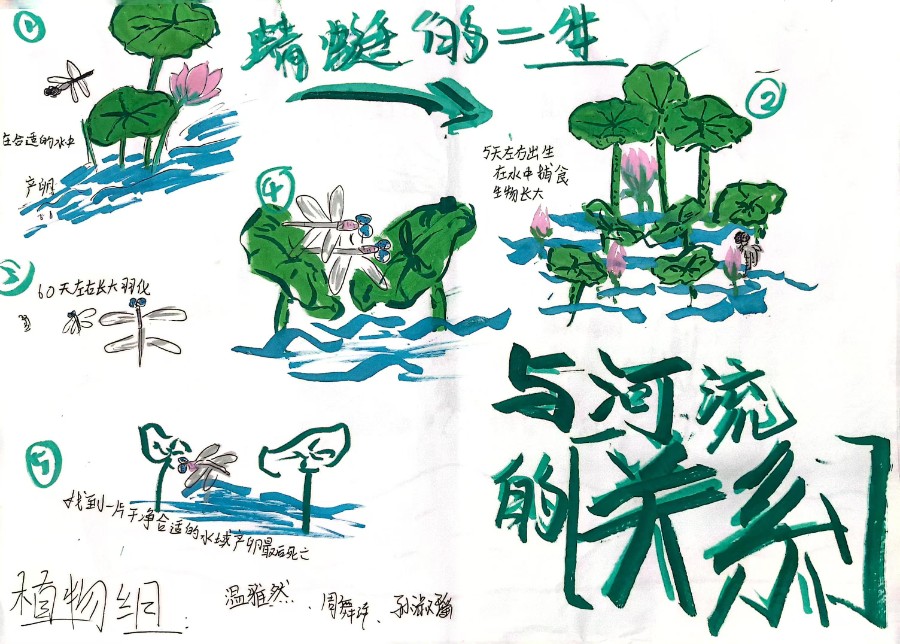 ①
蜻蜓的一生
②
在合适的水中
产卵
5天左右出生
在水中捕食
生物长大
④
③
60天左右长大羽化
与河流
的关系
⑤
找到一片干净合适的水域产卵最后死亡
植物组:
温雅然、周舞、孙淑